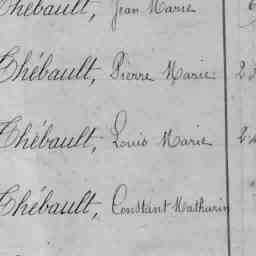 Thébault, Jean Marie
Thébault, Pierre Marie
Thébault, Louis Marie
Thébault, Constant Mathurin